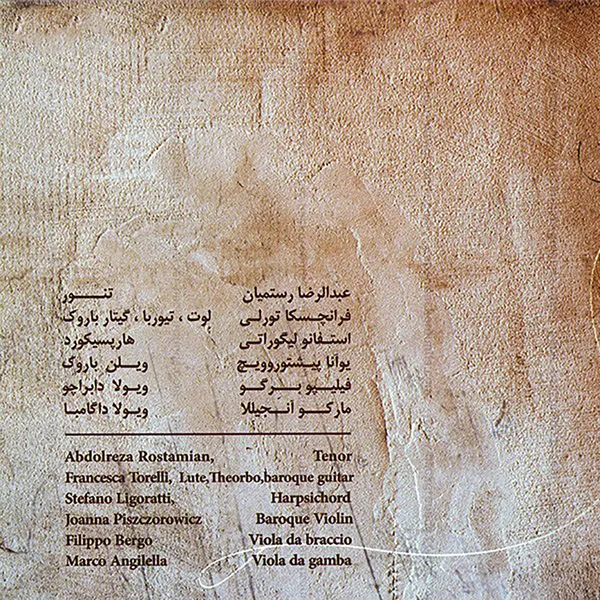 عبدالرضا رستمیان تنور
فرانچسکا تورلی لوت ، تیوربا ، گیتار باروک
استفانو لیگوراتی هارپسیکورد
یوآنا پیشتوروویچ ویلن باروک
فیلیپو برگو ویولا دابراچو
مارکو آنجیللا ویولا داگامبا
Abdolreza Rostamian, Tenor
Francesca Torelli, Lute,Theorbo,baroque guitar
Stefano Ligoratti, Harpsichord
Joanna Piszczorowicz Baroque Violin
Filippo Bergo Viola da braccio
Marco Angilella Viola da gamba